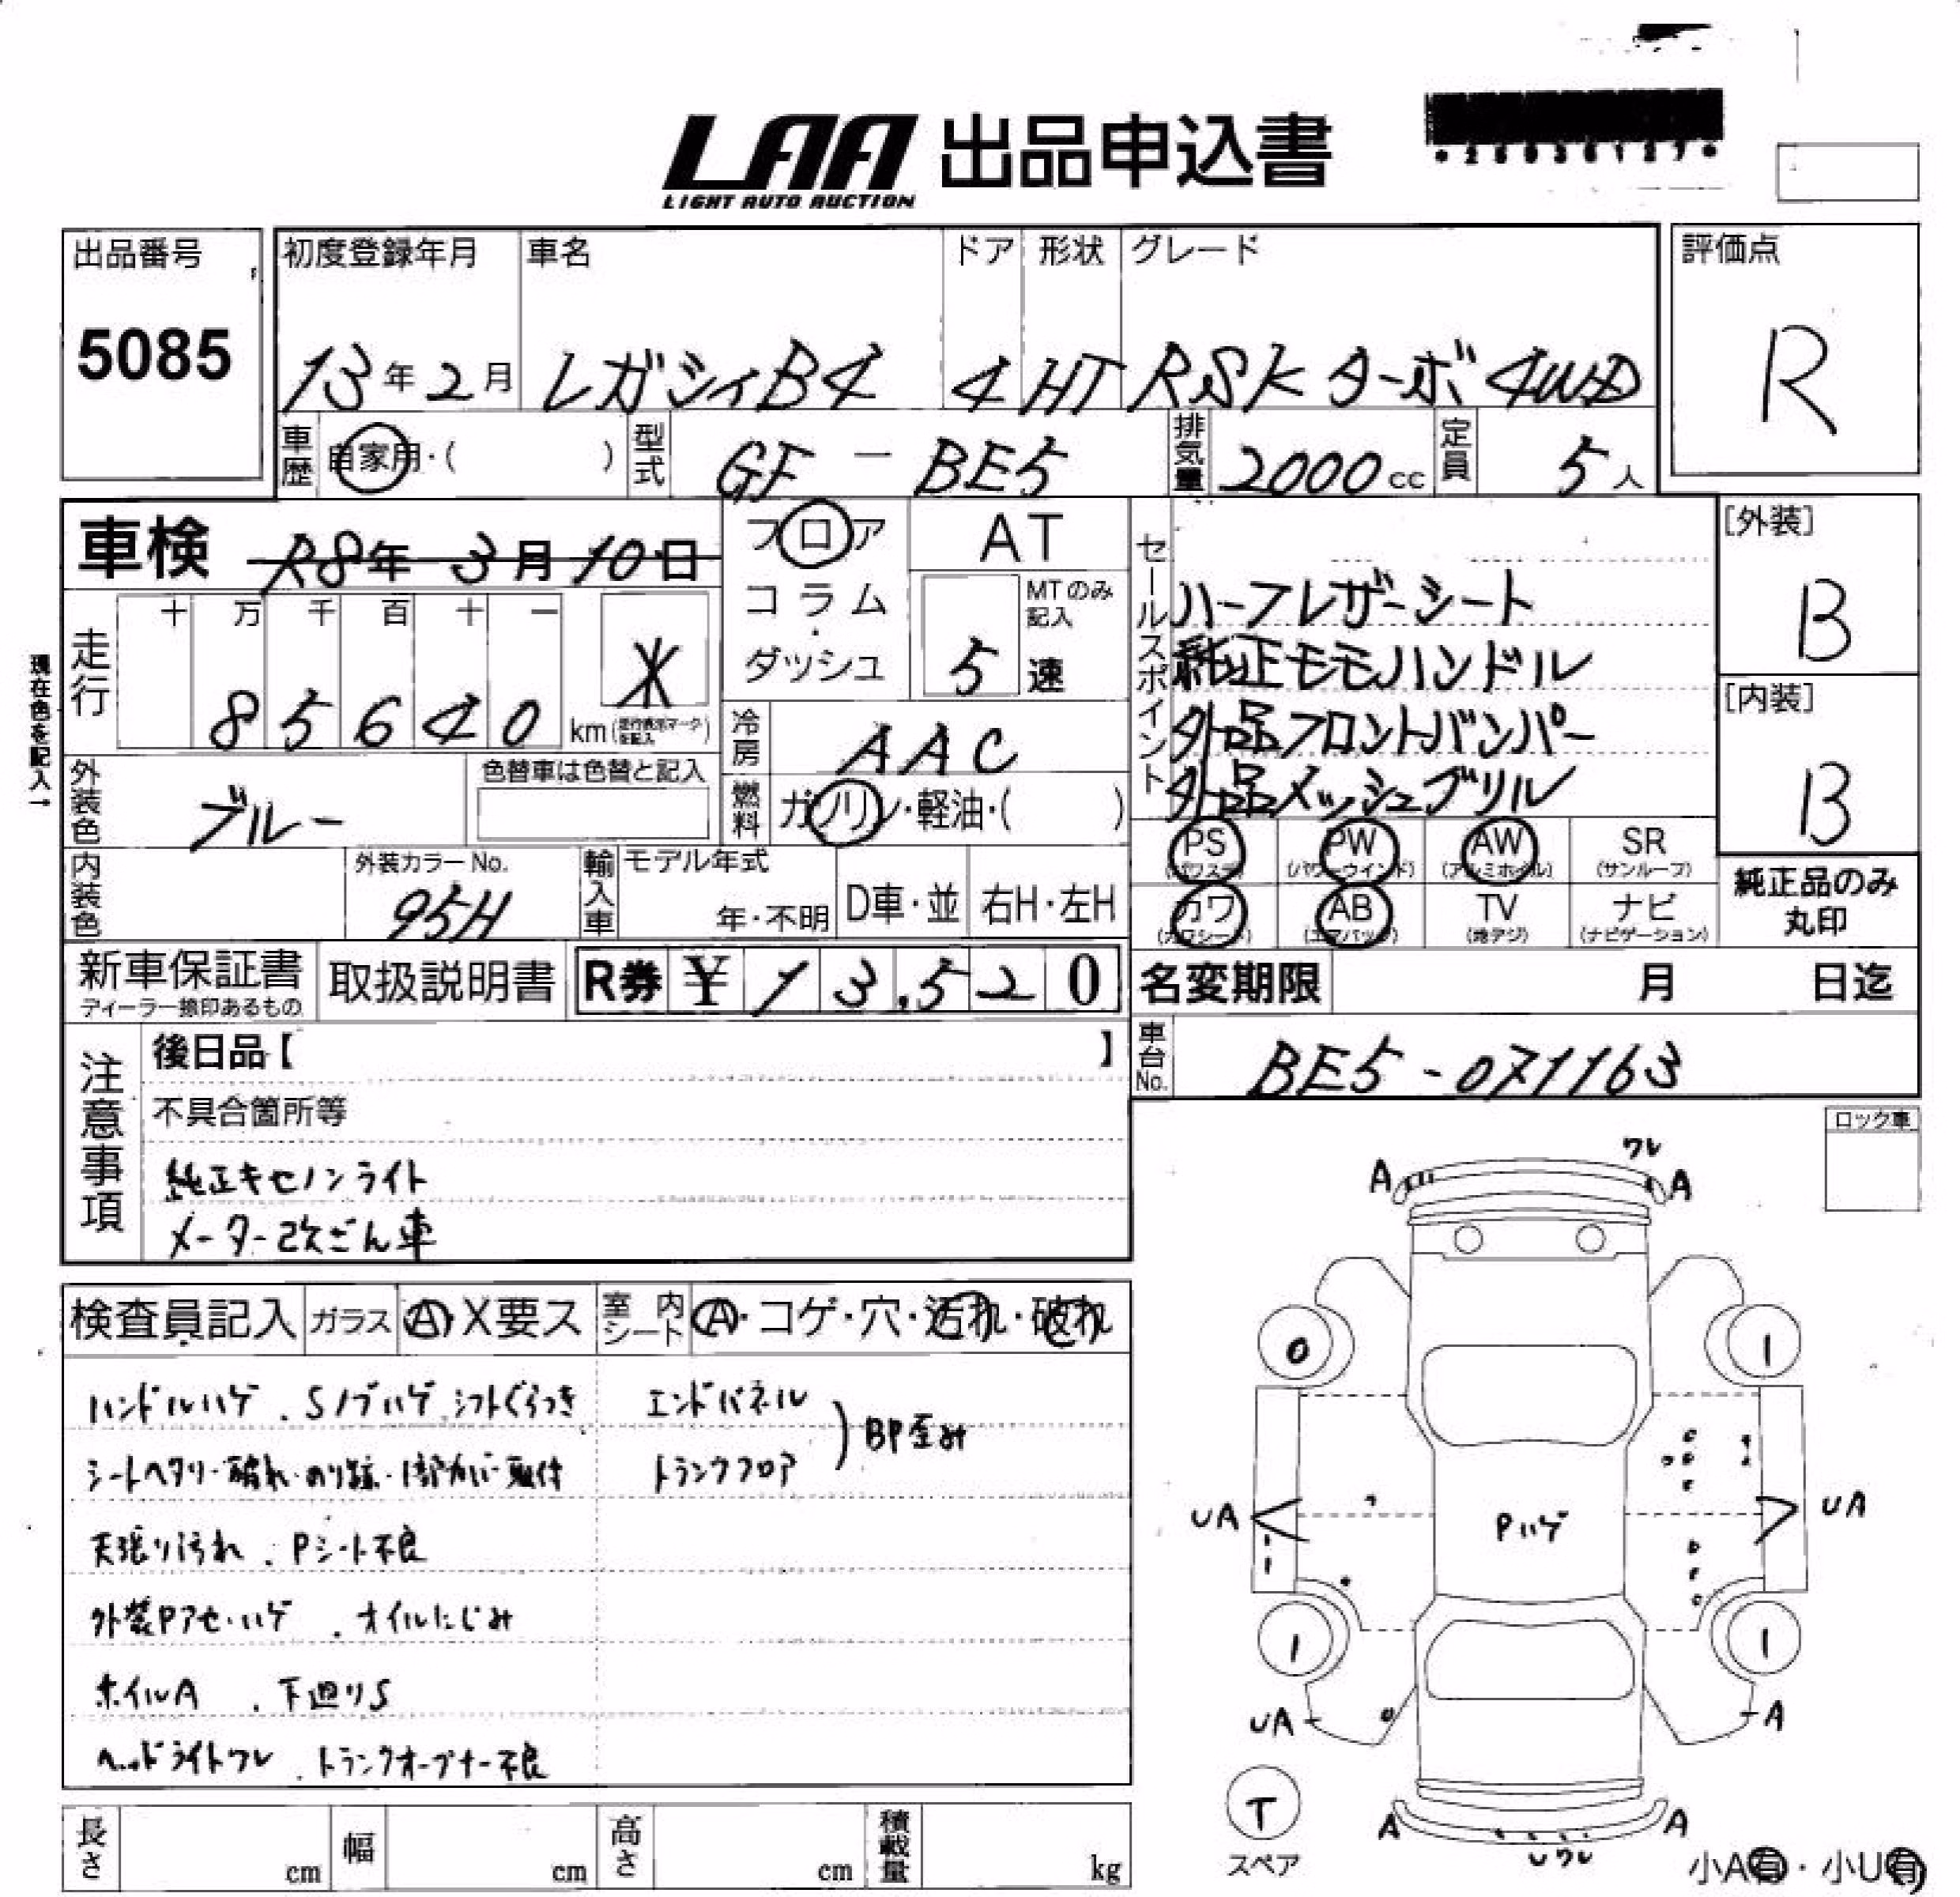 LAA 出品申込書
LIGHT AUTO AUCTION
出品番号
5085
初度登録年月
13年2月
車名
レガシィB4
ドア
4
形状
HT
グレード
RSKターボ4WD
評価点
R
車歴
自家用・( )
型式
GF - BE5
排気量
2000cc
定員
5人
車検
R8年 3月10日
フロア
コラム
ダッシュ
AT
MTのみ記入
5速
セールスポイント
ハーフレザーシート
純正モモハンドル
外品フロントバンパー
外品メッシュグリル
[外装]
B
[内装]
B
現在色を記入→
走行
十 万 千 百 十 一
85640 km
*
(走行表示マークを記入)
冷房
AAC
燃料
ガソリン・軽油・( )
外装色
ブルー
色替車は色替と記入
内装色
外装カラーNo.
95H
輸入車
モデル年式
年・不明
D車・並
右H・左H
PS
(パワステ)
PW
(パワーウインド)
AW
(アルミホイル)
SR
(サンルーフ)
カワ
(カワシート)
AB
(エアバック)
TV
(地デジ)
ナビ
(ナビゲーション)
純正品のみ
丸印
新車保証書
ディーラー捺印あるもの
取扱説明書
R券 ¥13,520
名変期限 月 日迄
車台No.
BE5-071163
注意事項
後日品【 】
不具合箇所等
純正キセノンライト
メーター改ざん車
ロック車
検査員記入
ガラス
A・X要ス
室内シート
A・コゲ・穴・汚れ・破れ
ハンドルハゲ . Sノブハゲ シフトぐらつき
シートヘタリ・破れ・のり跡・1部カバー取付
天張り汚れ . Pシート不良
外装Pアセ・ハゲ . オイルにじみ
ホイルA . 下廻りS
ヘッドライトワレ . トランクオープナー不良
エンドパネル
トランクフロア
BP歪み
ワレ
A A
0 1
UA UA
Pハゲ
1 1
UA A
T
スペア
A A
Uワレ
小A有・小U有
長さ cm
幅 cm
高さ cm
積載量 kg